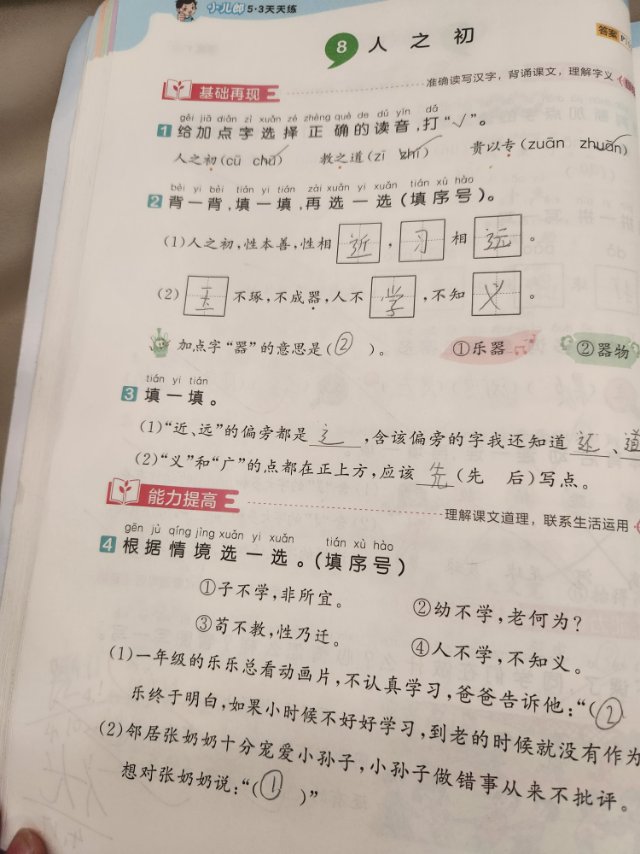 小儿郎 5·3天天练
8 人之初
答案
准确读写汉字，背诵课文，理解字义
基础再现
gěi jiā diǎn zì xuǎn zé zhèng què de dú yīn dǎ
1 给加点字选择正确的读音，打“√”。
人之初(cū chū) 教之道(zī zhī) 贵以专(zuān zhuān)
bèi yi bèi tián yi tián zài xuǎn yi xuǎn tián xù hào
2 背一背，填一填，再选一选(填序号)。
(1)人之初，性本善，性相近，习相远。
(2)玉不琢，不成器，人不学，不知义。
加点字“器”的意思是(②)。 ①乐器 ②器物
tián yi tián
3 填一填。
(1)“近、远”的偏旁都是辶，含该偏旁的字我还知道还、道
(2)“义”和“广”的点都在正上方，应该先(先 后)写点。
能力提高
理解课文道理，联系生活运用
gēn jù qíng jìng xuǎn yi xuǎn tián xù hào
4 根据情境选一选。(填序号)
①子不学，非所宜。 ②幼不学，老何为？
③苟不教，性乃迁。 ④人不学，不知义。
(1)一年级的乐乐总看动画片，不认真学习，爸爸告诉他：“(②
乐终于明白，如果小时候不好好学习，到老的时候就没有作为
(2)邻居张奶奶十分宠爱小孙子，小孙子做错事从来不批评。
想对张奶奶说：“(①)”